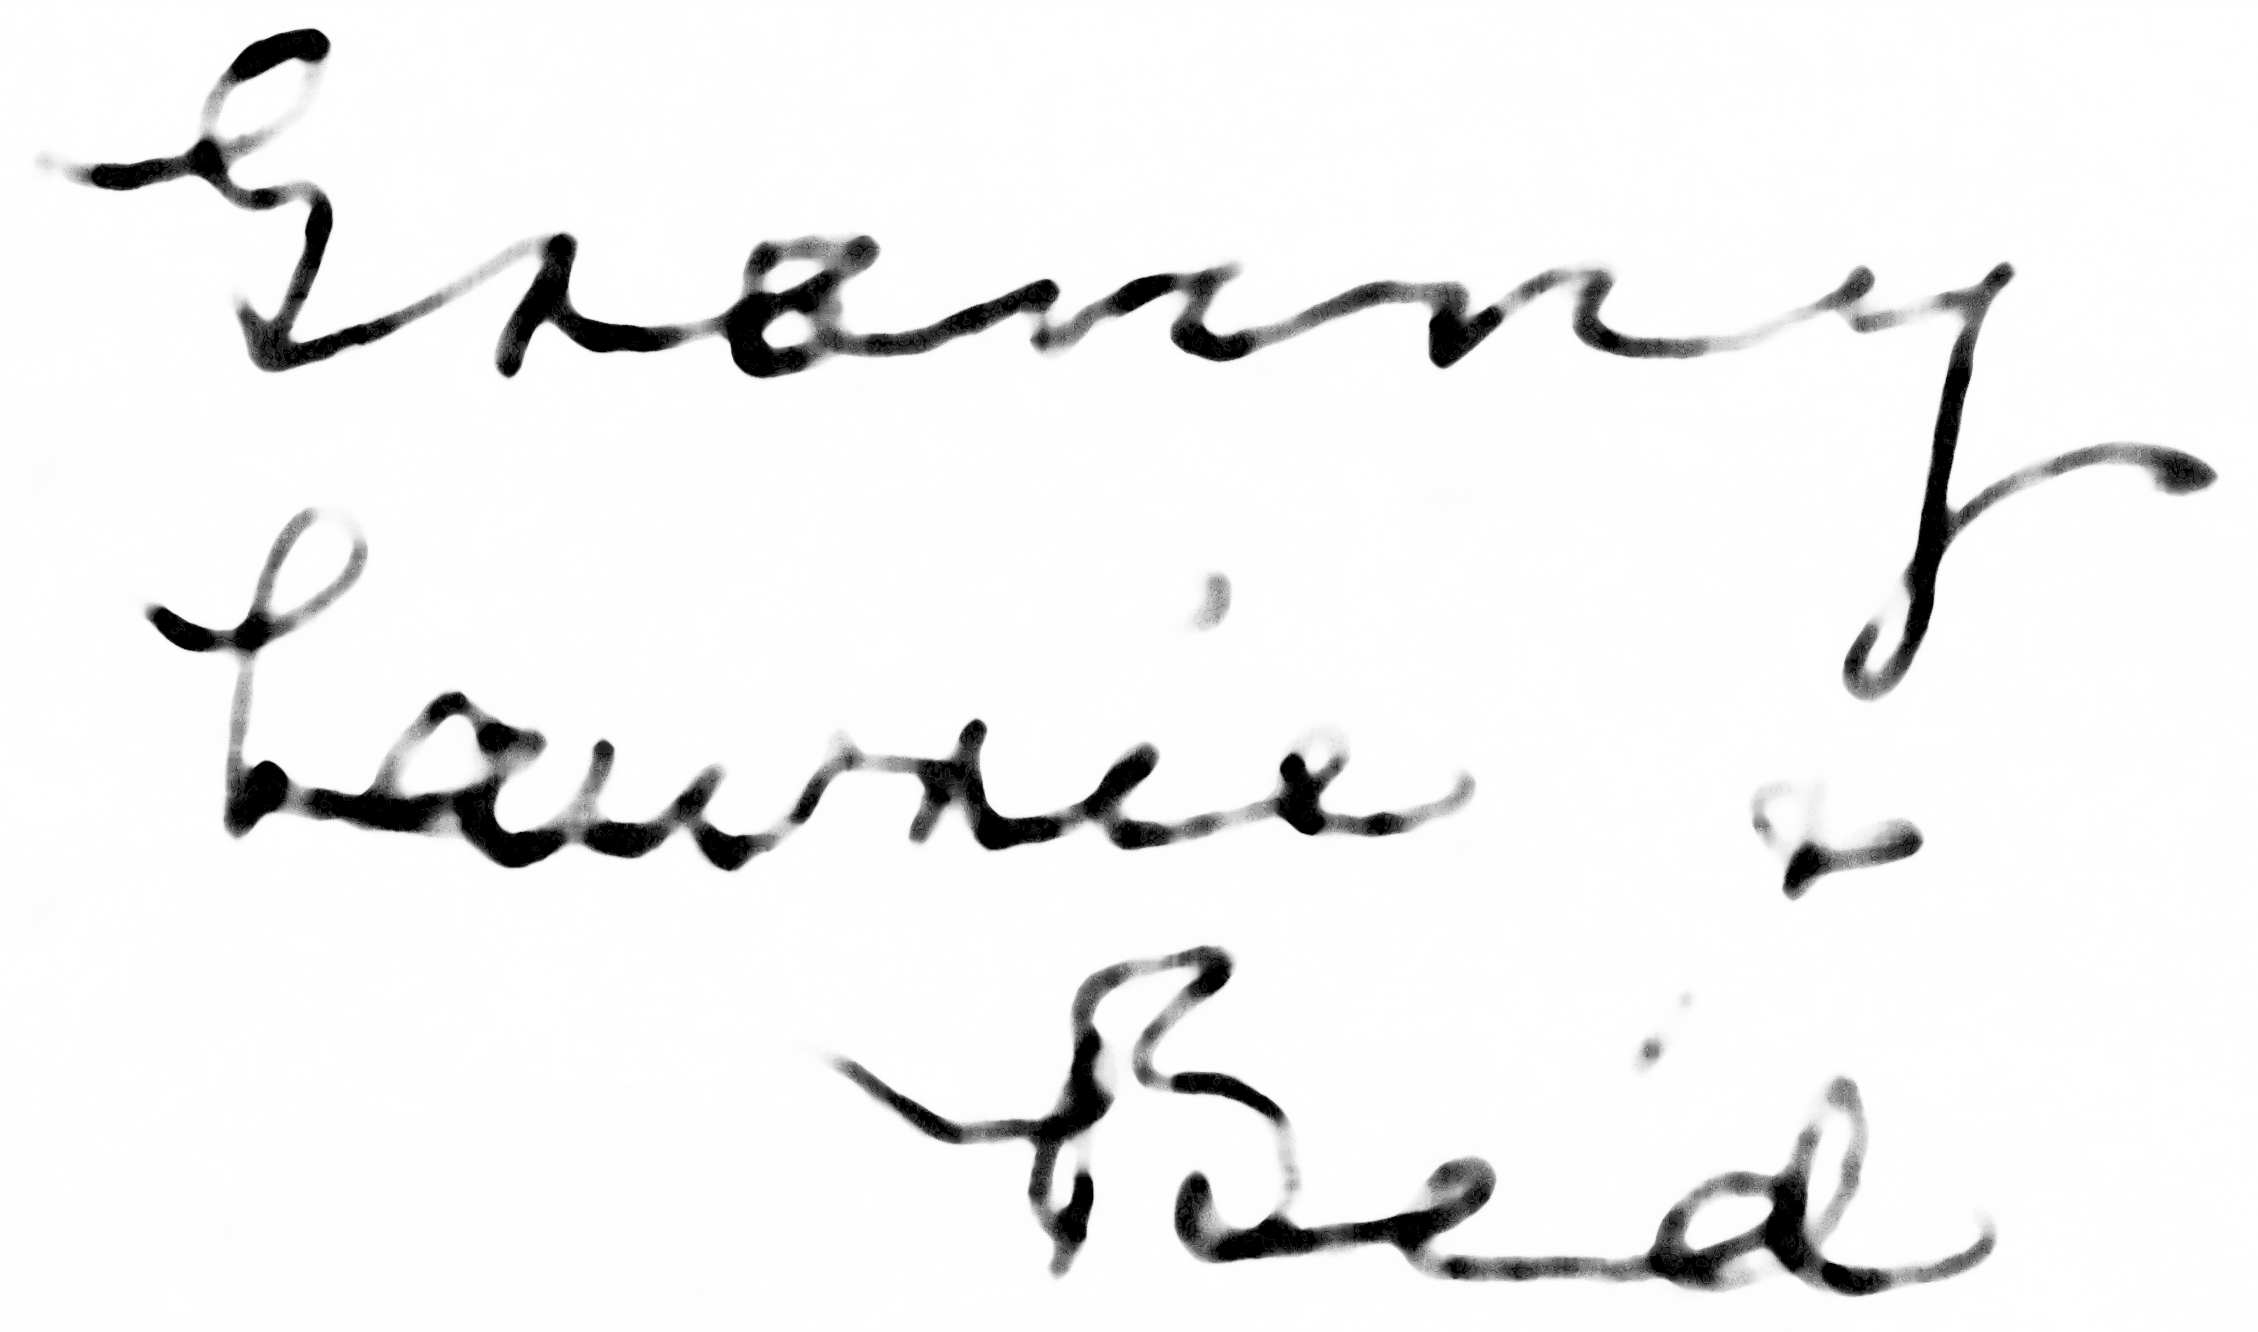 Granny
Lawrie &
Reid